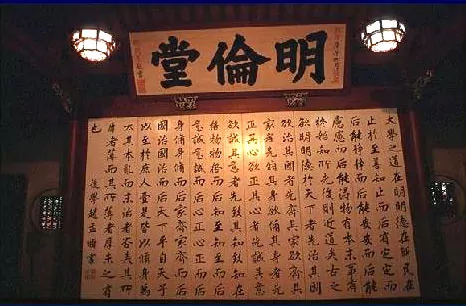 明倫堂
大學之道在明明德在親民在
止於至善知止而后有定定而
后能靜靜而后能安安而后能
慮慮而后能得物有本末事有
終始知所先後則近道矣古之
欲明明德於天下者先治其國
欲治其國者先齊其家欲齊其
家者先脩其身欲脩其身者先
正其心欲正其心者先誠其意
欲誠其意者先致其知致知在
格物物格而后知至知至而后
意誠意誠而后心正心正而后
身脩身脩而后家齊家齊而后
國治國治而后天下平自天子
以至於庶人壹是皆以脩身為
本其本亂而末治者否矣其所
厚者薄而其所薄者厚未之有
也
後學趙孟頫書